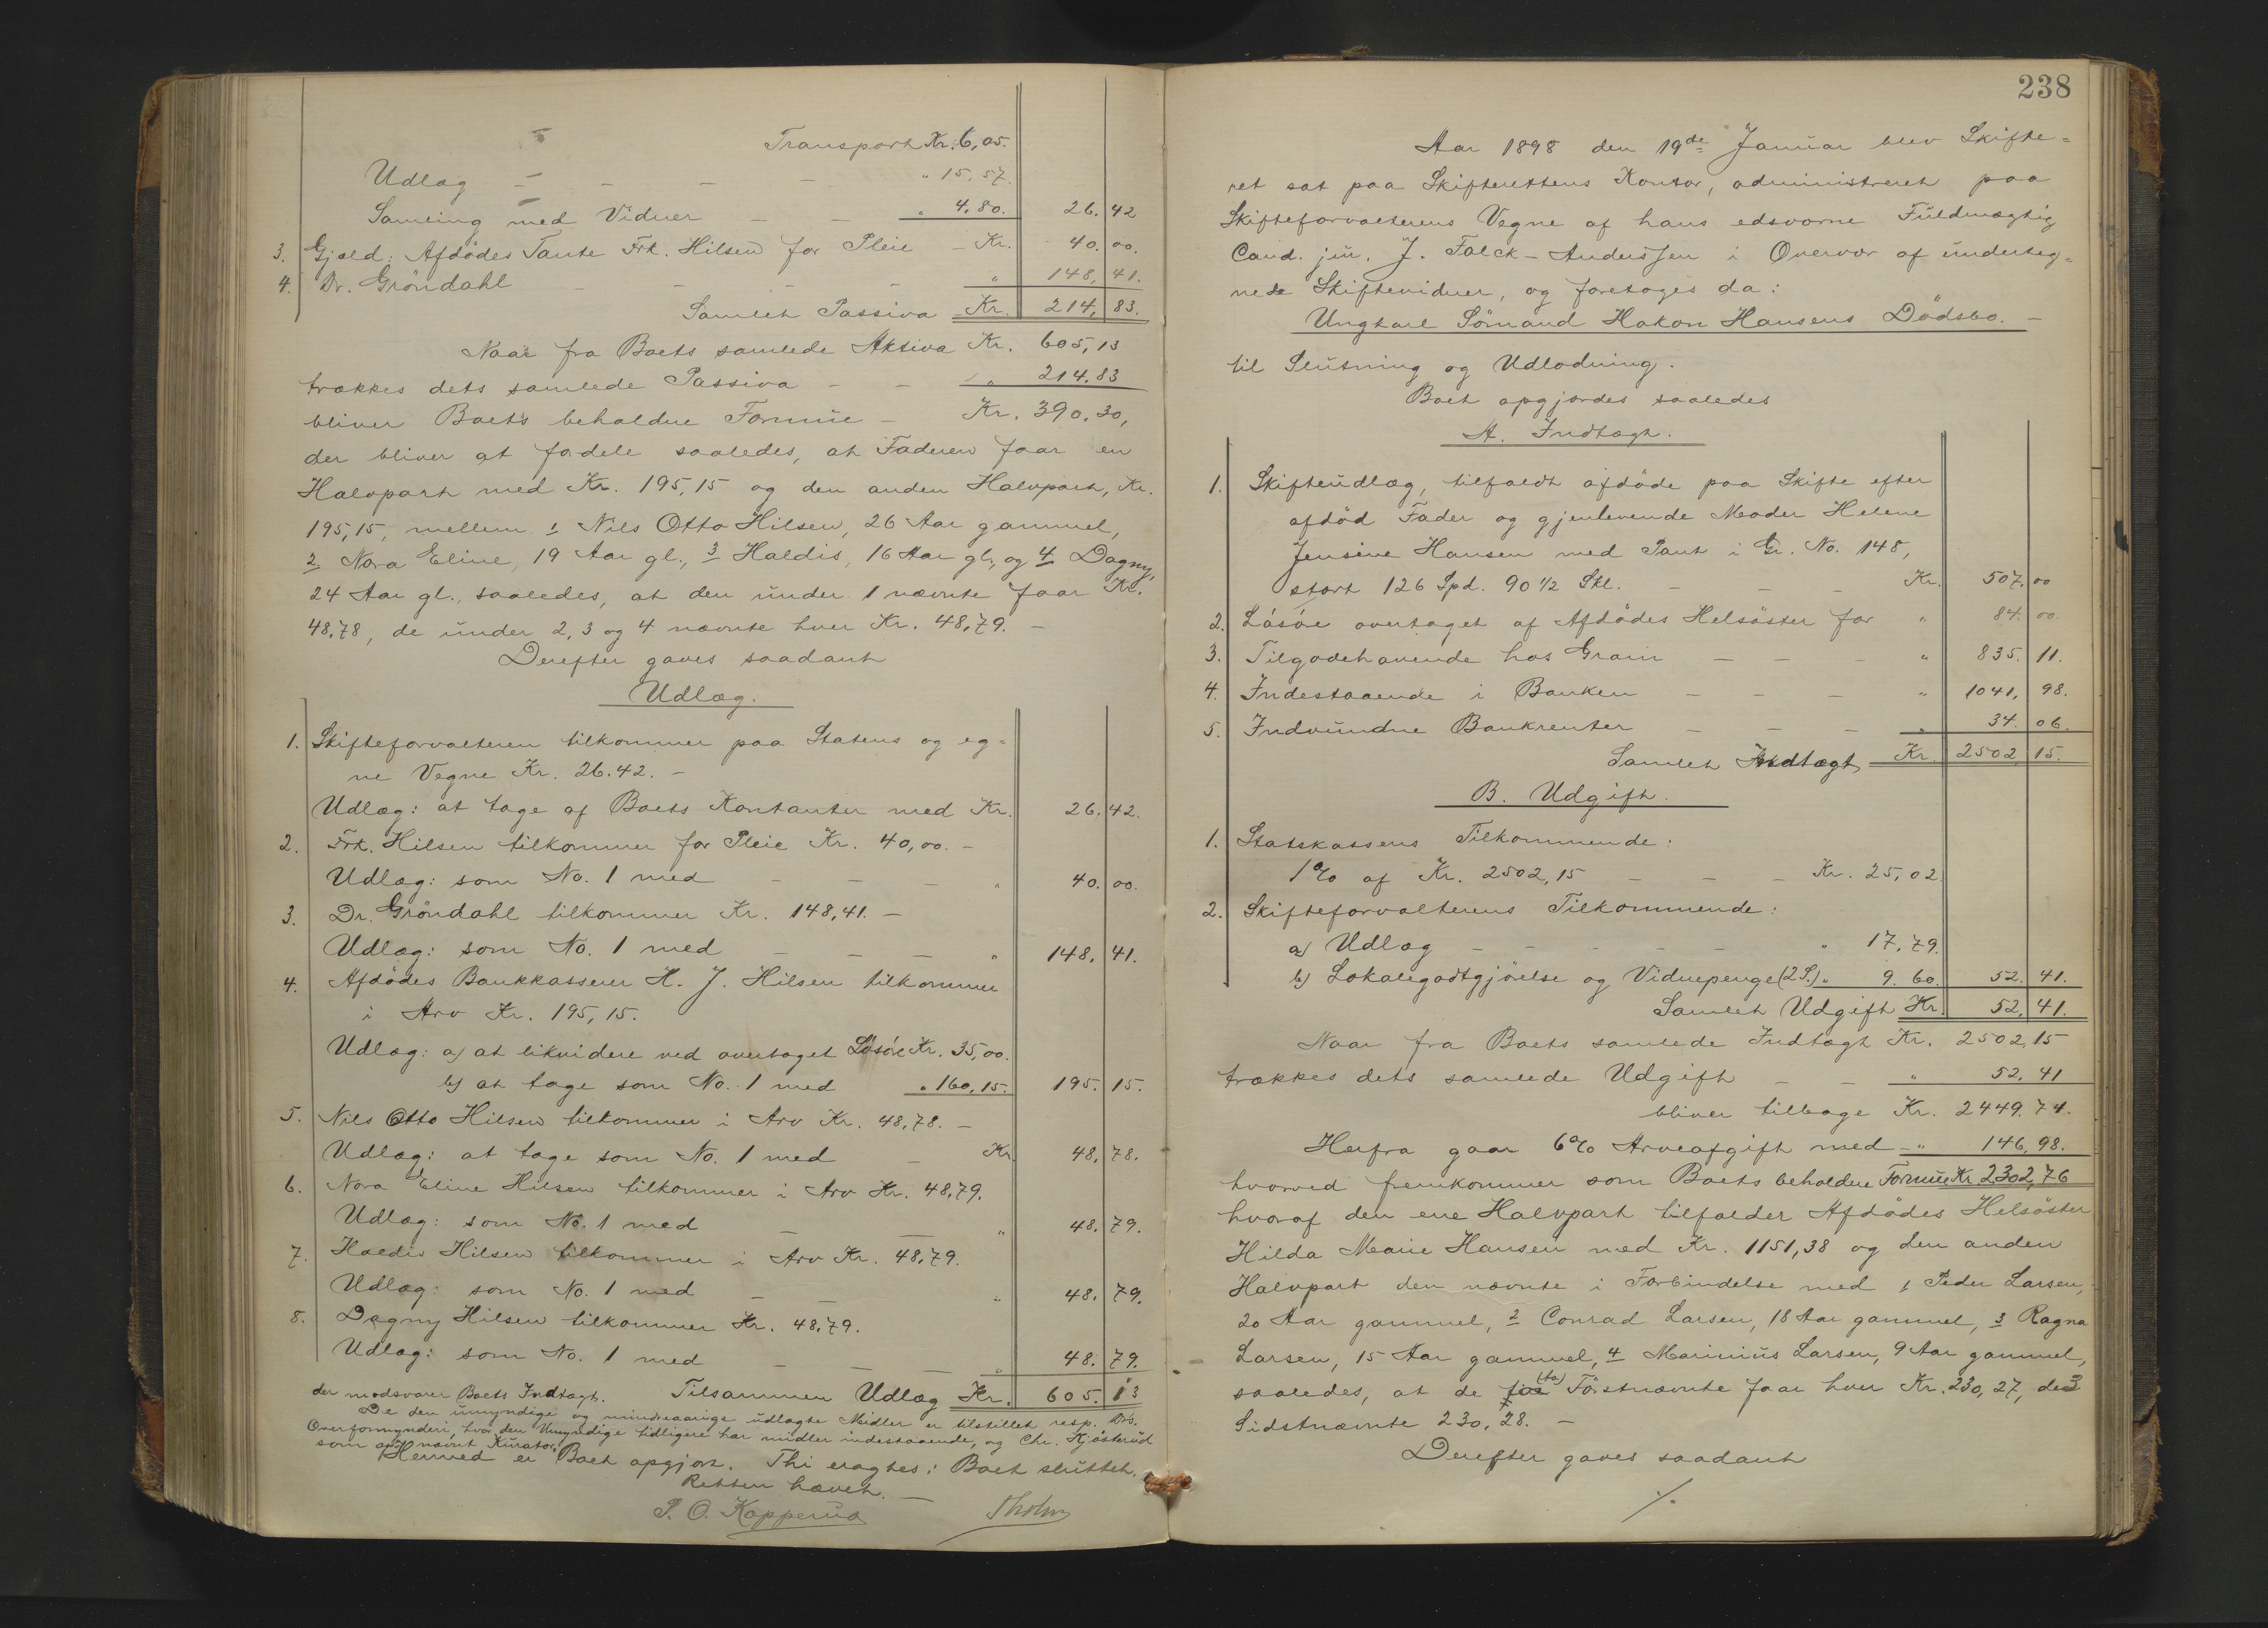 Transport Kr. 6,05.
Udlæg – – – – " 15.57.
Samling med Vidner – – " 4.80. 26. 42
3. Gjæld: Afdödes Tante Frk. Hilsen for Pleie – Kr. 40. 00.
4. Dr. Gröndahl – – – – " 148, 41.
Samlet Passiva – Kr. 214, 83.
Naar fra Boets samlede Aktiva Kr. 605,13
trækkes dets samlede Passiva – – " 214.83
bliver Boets beholdne Formue – Kr. 390.30,
der bliver at fordele saaledes, at Faderen faar en
Halvpart med Kr. 195,15 og den anden Halvpart, Kr.
195,15, mellem 1 Nils Otto Hilsen, 26 Aar gammel,
2 Nora Eline, 19 Aar gl., 3 Haldis, 16 Aar gl., og 4 Dagny,
24 Aar gl., saaledes, at den under 1 nævnte faar Kr.
48.78, de under 2, 3 og 4 nævnte hver Kr. 48,79. –
Derefter gaves saadant
Udlæg.
1. Skifteforvalteren tilkommer paa Statens og eg=
ne Vegne Kr. 26.42. –
Udlæg: at tage af Boets Kontanter med Kr. 26. 42.
2. Frk. Hilsen tilkommer for Pleie Kr. 40,00. –
Udlæg: som No. 1 med – – – " 40. 00.
3. Dr. Gröndahl tilkommer Kr. 148,41. –
Udlæg: som No. 1 med – – – " 148. 41.
4. Afdödes Bankkasserer H. J. Hilsen tilkommer
i Arv Kr. 195,15.
Udlæg: a) at likvidere ved overtaget Lösöre Kr. 35,00.
b) at tage som No. 1 med " 160,15. 195. 15.
5. Nils Otto Hilsen tilkommer i Arv Kr. 48,78. –
Udlæg: at tage som No. 1 med – Kr. 48, 78.
6. Nora Eline Hilsen tilkommer i Arv Kr. 48,79.
Udlæg: som No. 1 med – – " 48. 79.
7. Haldis Hilsen tilkommer i Arv Kr. 48,79.
Udlæg: som No. 1 med – – " 48. 79.
8. Dagny Hilsen tilkommer Kr. 48,79.
Udlæg: som No. 1 med – – – " 48. 79.
der modsvarer Boets Indtægt. Tilsammen Udlæg Kr. 605. 13
De den umyndige og mindreaarige udlagte Midler er tilstillet resp. Drs.
Overformynderi, hvor den Umyndige tidligere har midler indestaaende, og Chr. Kjösterud
som opnævnt Kurator.
Hermed er Boet opgjort. Thi eragtes: Boet sluttet.
Retten hævet. –
P. O. Kopperud Tholm
238
Aar 1898 den 19de Januar blev Skifte=
ret sat paa Skifterettens Kontor, administreret paa
Skifteforvalterens Vegne af hans edsvorne Fuldmægtig
Cand. jur. J. Falck-Anderssen i Overvær af underteg=
nede Skiftevidner, og foretoges da:
Ungkarl Sömand Hakon Hansens Dödsbo. –
til Slutning og Udlodning.
Boet opgjordes saaledes
A. Indtægt.
1. Skifteudlæg, tilfaldt afdöde paa Skifte efter
afdöd Fader og gjenlevende Moder Helene
Jensine Hansen med Pant i Gr. No. 148,
stort 126 Spd. 90 1/2 Skl. – – – Kr. 507. 00
2. Lösöre overtaget af Afdödes Helsöster for " 84. 00.
3. Tilgodehavende hos Gram – – – " 835. 11.
4. Indestaaende i Banken – – – " 1041, 98.
5. Indvundne Bankrenter – – – " 34. 06.
Samlet Indtægt Kr. 2502 15.
B. Udgift.
1. Statskassens Tilkommende:
1% af Kr. 2502,15 – – – Kr. 25,02.
2. Skifteforvalterens Tilkommende:
a) Udlæg – – – – – " 17,79.
b) Lokalegodtgjörelse og Vidnepenge (2 S.) " 9.60. 52. 41.
Samlet Udgift Kr. 52, 41.
Naar fra Boets samlede Indtægt Kr. 2502,15
trækkes dets samlede Udgift – – " 52.41
bliver tilbage Kr. 2449.74.
Herfra gaar 6% Arveafgift med – " 146,98.
hvorved fremkommer som Boets beholdne Formue Kr. 2302,76
hvoraf den ene Halvpart tilfalder Afdödes Helsöster
Hilda Marie Hansen med Kr. 1151,38 og den anden
Halvpart den nævnte i Forbindelse med 1 Peder Larsen,
20 Aar gammel, 2 Conrad Larsen, 18 Aar gammel, 3 Ragna
Larsen, 15 Aar gammel, 4 Marinius Larsen, 9 Aar gammel,
saaledes, at de (to) Förstnævnte faar hver Kr. 230,27, de 3
Sidstnævnte 230,28. –
Derefter gaves saadant
./.